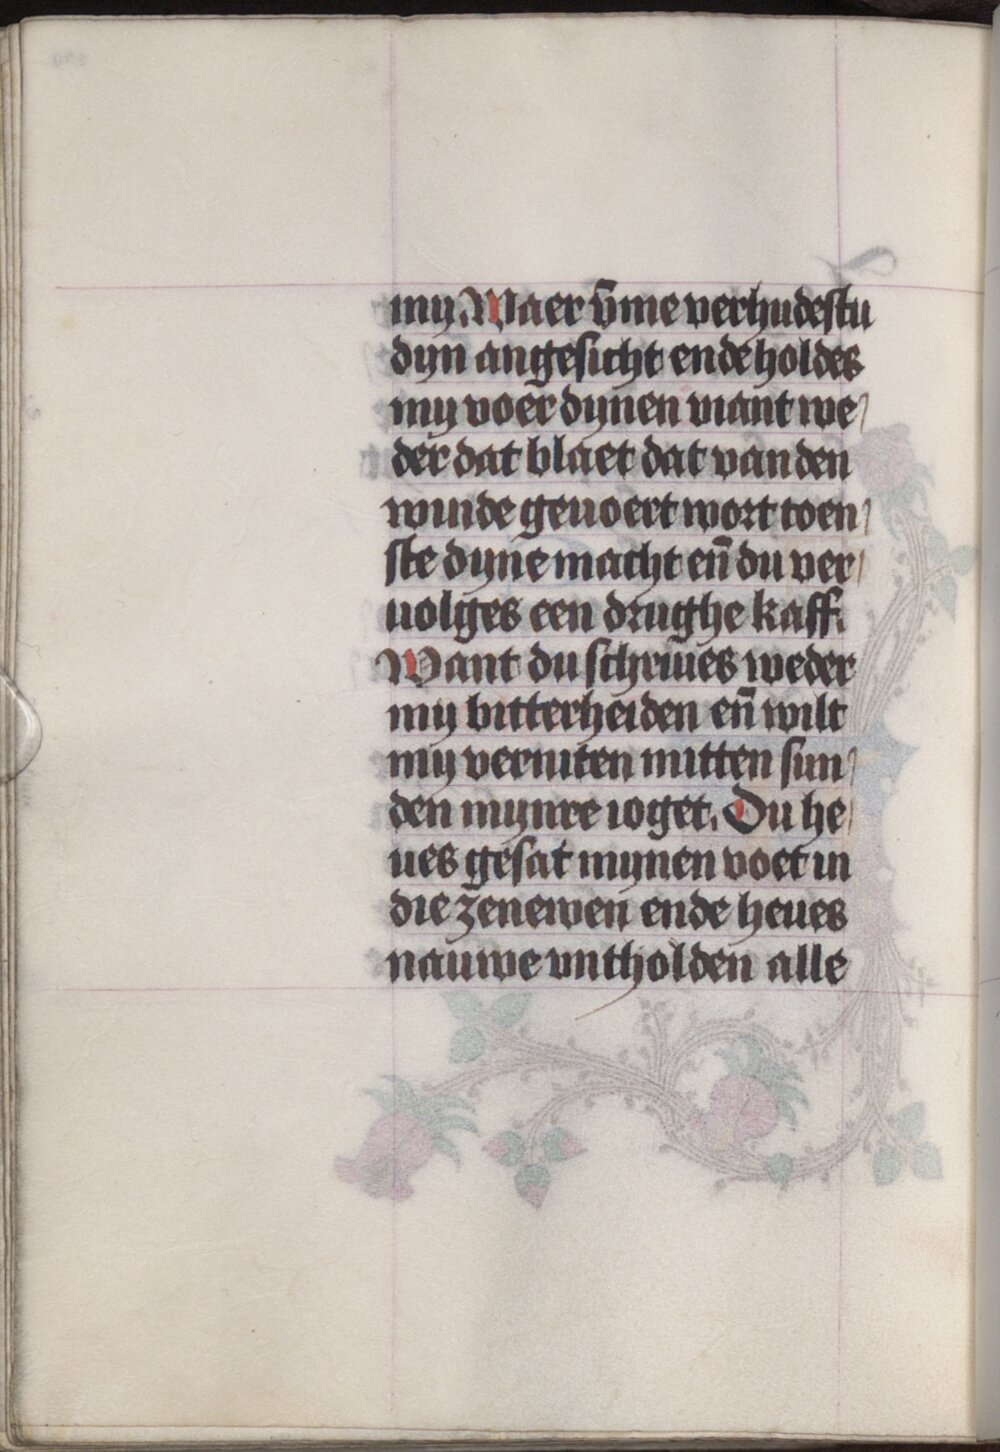 my. Waer v̄me verhudestu
dyn angesicht ende holdes
my voer dynen viant we/
der dat blaet dat van den
winde geuoert wort toen/
ste dyne macht en̄ du ver/
uolges een drughe kaff.
Want du schriues weder
my bitterheiden en̄ wilt
my verniten mitten sun/
den mynre ioget. Du he/
ues gesat mynen voet in
die zenewen ende heues
nauwe untholden alle